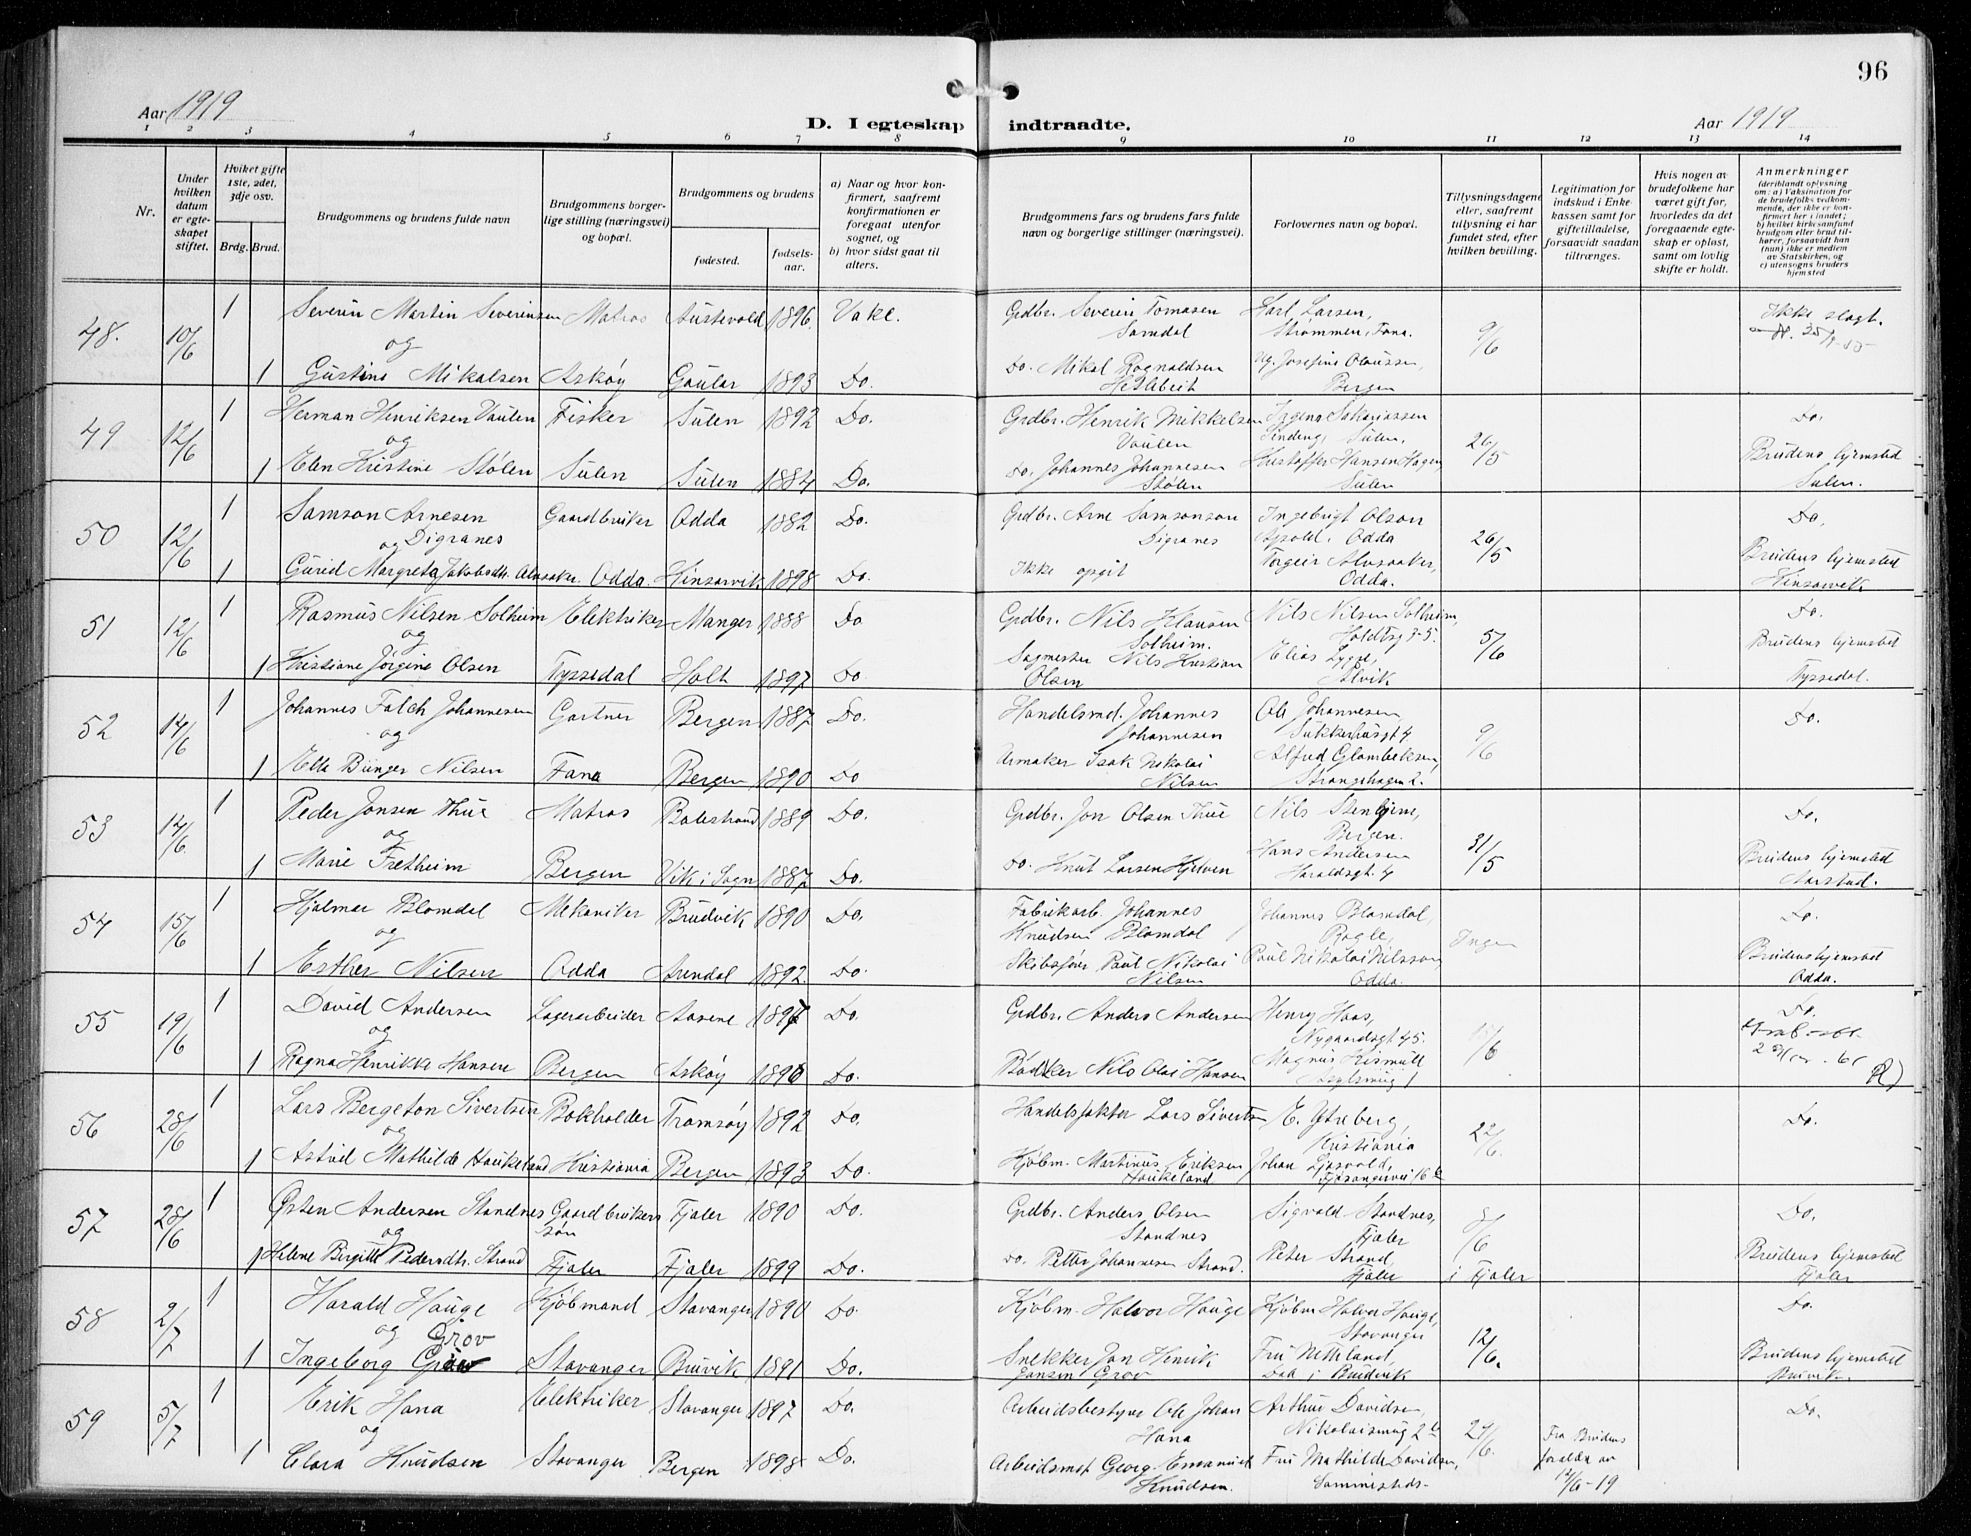 96
Aar 1919
D. I egteskap indtraadte.
Aar 1919
1 2 3 4 5 6 7 8 9 10 11 12 13 14
Nr.
Under hvilken datum er egteskapet stiftet.
Hvilket gifte 1ste, 2det, 3dje osv.
Brdg. Brud.
Brudgommens og brudens fulde navn
Brudgommens borgerlige stilling (næringsvei) og bopæl.
Brudgommens og brudens
fødested.
fødselsaar.
a) Naar og hvor konfirmert, saafremt konfirmationen er foregaat utenfor sognet, og
b) hvor sidst gaat til alters.
Brudgommens fars og brudens fars fulde navn og borgerlige stillinger (næringsvei).
Forlovernes navn og bopæl.
Tillysningsdagene eller, saafremt tillysning ei har fundet sted, efter hvilken bevilling.
Legitimation for indskud i Enkekassen samt for giftetilladelse, forsaavidt saadan tiltrænges.
Hvis nogen av brudefolkene har været gift før, hvorledes da det foregaaende egteskap er opløst, samt om lovlig skifte er holdt.
Anmerkninger
(deriblandt oplysning om: a) Vaksination for de brudefolks vedkommende, der ikke er konfirmert her i landet; b) hvilket kirkesamfund brudgom eller brud tilhører, forsaavidt han (hun) ikke er medlem av Statskirken, og c) utensogns bruders hjemsted
48. 10/6 1 Severin Martin Severinsen Matros Austevold 1896 Va kl. Grdbr. Severin Tomasen Samdal Karl Larsen, Strømmen, Fana. 9/6 Ikke slegt.
og
1 Gustine Mikalsen Askøy Gaular 1893 Do. Do. Mikal Ragnaldsen Josefine Olaussen, Bergen
49 12/6 1 Herman Henriksen Vaulen Fisker Sulen 1892 Do. Grdbr. Henrik Mikkelsen Vaulen Sakariassen Sulen. 26/5 Do.
og
1 Elen Kristine Stølen Sulen Sulen 1884 Do. Do. Johannes Johannesen Stølen Kristoffer Hansen Hagen Sulen Brudens hjemsted Sulen.
50 12/6 1 Samson Arnesen Digranes Gaardbruker Odda 1882 Do. Grdbr. Arne Samsonson Digranes Ingebrigt Olson Apold, Odda 26/5 Do.
og
1 Gurid Margreta Jakobsdtr. Alvsaker Odda Kinsarvik 1898 Do. Ikke opgit Torgeir Alvsaaker, Odda. Brudens hjemsted Kinsarvik
51 12/6 1 Rasmus Nilsen Solheim Elektriker Manger 1888 Do Grdbr. Nils Klausen Solheim. Nils Nilsen Solheim, 5/6 Do.
og
1 Kristiane Jørgine Olsen Tyssedal Holt 1897 Do. Sagmester Nils Kristian Olsen Elias Lygre, Ålvik Brudens hjemsted Tyssedal.
52 14/6 1 Johannes Falch Johannesen Gartner Bergen 1887 Do. Handelsmd. Johannes Johannesen Ole Johannesen Sukkerhusgt 4 9/6 Do.
og
1 Ella Bünger Nilsen Fana Bergen 1890 Do Urmaker Isak Nikolai Nilsen Alfred Glambeksen, Strangehagen 2.
53 14/6. 1 Peder Jonsen Thue Matros Balestrand 1889 Do. Grdbr. Jon Olsen Thue Nils Stenhjem, Bergen. 31/5 Do.
og
1 Marie Fretheim Bergen Vik i Sogn 1887 Do. Do. Knut Larsen Hjelven Hans Andersen Haraldsgt. 4 Brudens hjemsted Aarstad.
54 15/6 1 Hjalmar Blomdal Mekaniker Bruvik 1890 Do. Fabrikarb. Johannes Knudsen Blomdal Johannes Blomdal, Ingen Do.
og
1 Esther Nilsen Odda Arendal 1892. Do. Skibsfører Paul Nikolai Nilsen Paul Nikolai Nilsson, Odda. Brudens hjemsted Odda.
55 19/6 1 David Andersen Lagerarbeider Aasene 1897 Do. Grdbr. Anders Andersen Henry Haas, Nygaardsgt 45. /6 Do.
og
1 Ragna Henrikke Hansen Bergen Askøy 1896 Do. Bødker Nils Olai Hansen Magnus
56 28/6 1 Lars Bergeton Sivertsen Bokholder Tromsøy 1892 Do. Handelsfakter Lars Sivertsen E. Ytreberg, Kristiania 22/6. Do.
og
1 Astrid Mathilde Haukeland Kristiania Bergen 1893 Do. Kjøbm. Martinus Eriksen Haukeland Johan
57 28/6 1 Østen Andersen Standnes Gaardbrukers søn Fjaler 1890 Do. Grdbr. Anders Olsen Standnes Sigvald Standnes, Fjaler 8/6 Do.
og
1 Helene Birgitte Pedersdtr. Strand Fjaler Fjaler 1899 Do. Do. Petter Johannesen Strand. Peter Strand, Fjaler i Fjaler Brudens hjemsted Fjaler
58 2/7 1 Harald Hauge Kjøbmand Stavanger 1890 Do. Kjøbm. Halvor Hauge Kjøbm Halvor Hauge, Stavanger 12/6. Do.
og Grov
1 Ingeborg Grov Stavanger Bruvik 1891 Do. Snekker Jon Henrik Jansen Grov Fru Netteland, Brudens hjemsted Bruvik.
59 5/7 1 Erik Hana Elektriker Stavanger 1897 Do. Arbeidsbestyrer Ole Johan Hana Arthur Davidsen, Nikolaismug 2 27/6. Do.
og
1 Clara Knudsen Stavanger Bergen 1898 Do. Arbeidsmd Georg Emanuel Knudsen. Fru Mathilde Davidsen, Sammesteds. Fra Brudens foreldre av 12/6-19